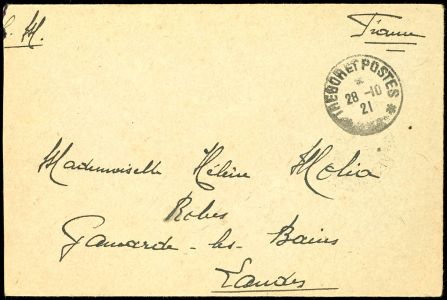 F. M.
France
TRESOR ET POSTES
*
28 -10
21
Mademoiselle Hélène Molia
Robes
Gamarde-les-Bains
Landes